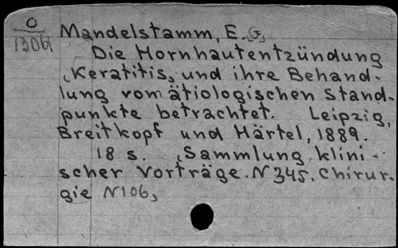 O
1306
Mandelstamm, E. G.
Die Hornhautentzündung
(Keratitis) und ihre Behand-
lung vom ätiologischen Stand-
punkte betrachtet. Leipzig,
Breitkopf und Härtel, 1889.
18 s. (Sammlung klini-
scher Vorträge. N 345. Chirur-
gie N 106)